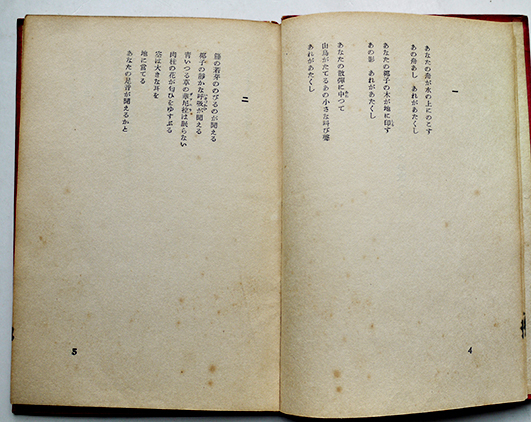 一
あなたの舟が水の上にのこす
あの舟あし　あれがあたくし
あなたの椰子の木が地に印す
あの影　あれがあたくし
あなたの散弾に中つて
山鳥がたてるあの小さな叫び声
あれがあたくし
4
二
藤の若芽ののびるのが聞える
椰子の静かな呼吸が聞える
青いつる草の華尼拉は眠らない
肉桂の花が匂ひをゆすぶる
妾は大きな耳を
地に当てる
あなたの足音が聞えるかと
5